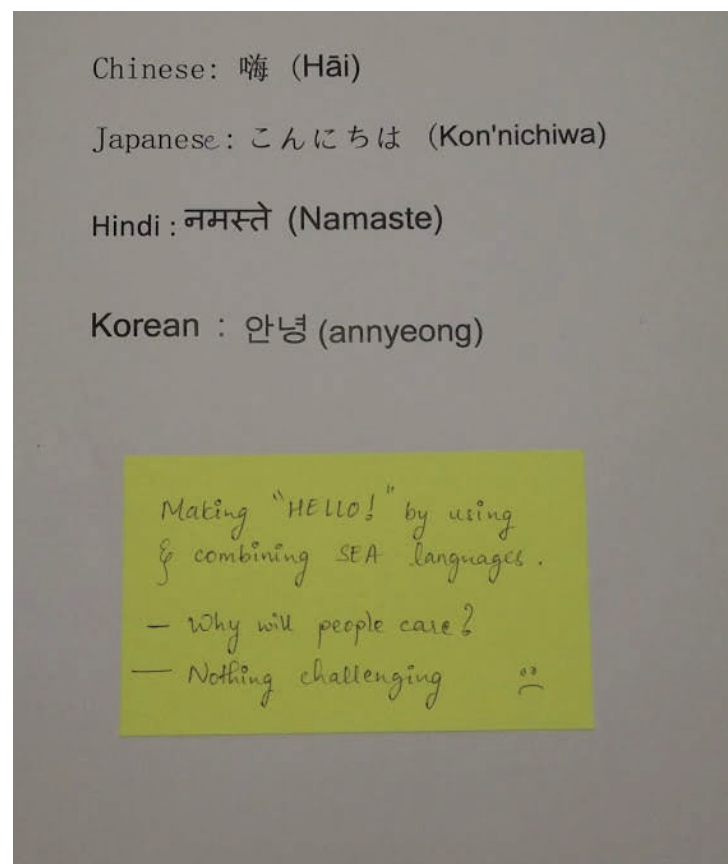 Chinese: 嗨 (Hāi)
Japanese: こんにちは (Kon'nichiwa)
Hindi : नमस्ते (Namaste)
Korean : 안녕 (annyeong)
Making "HELLO!" by using
& combining SEA languages.
- Why will people care?
- Nothing challenging